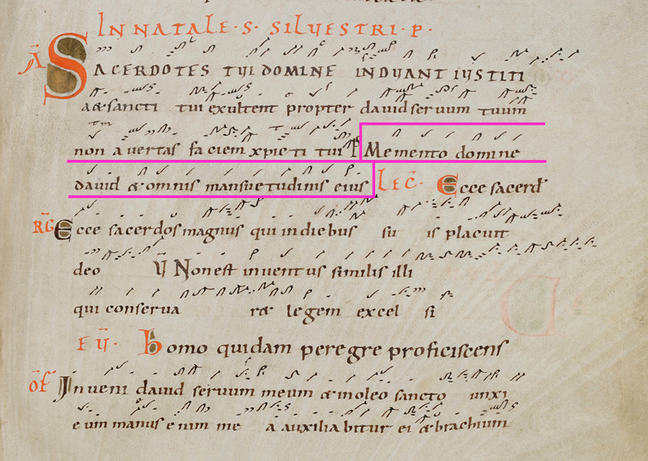 IN NATALE · S · SILVESTRI · P ·
A SACERDOTES TUI DOMINE INDUANT IUSTITI
a & sancti tui exultent propter david servum tuum
non avertas faciem xpicti tui P Memento domine
david & omnis mansuetudinis eius LEC · Ecce sacerd
RG Ecce sacerdos magnus qui in diebus su is placuit
deo V Non est inventus similis illi
qui conserva ret legem excel si
EV · homo quidam peregre proficiscens
OF Inveni david servum meum & oleo sancto unxi
eum manus enim me a auxiliabitur ei & brachium